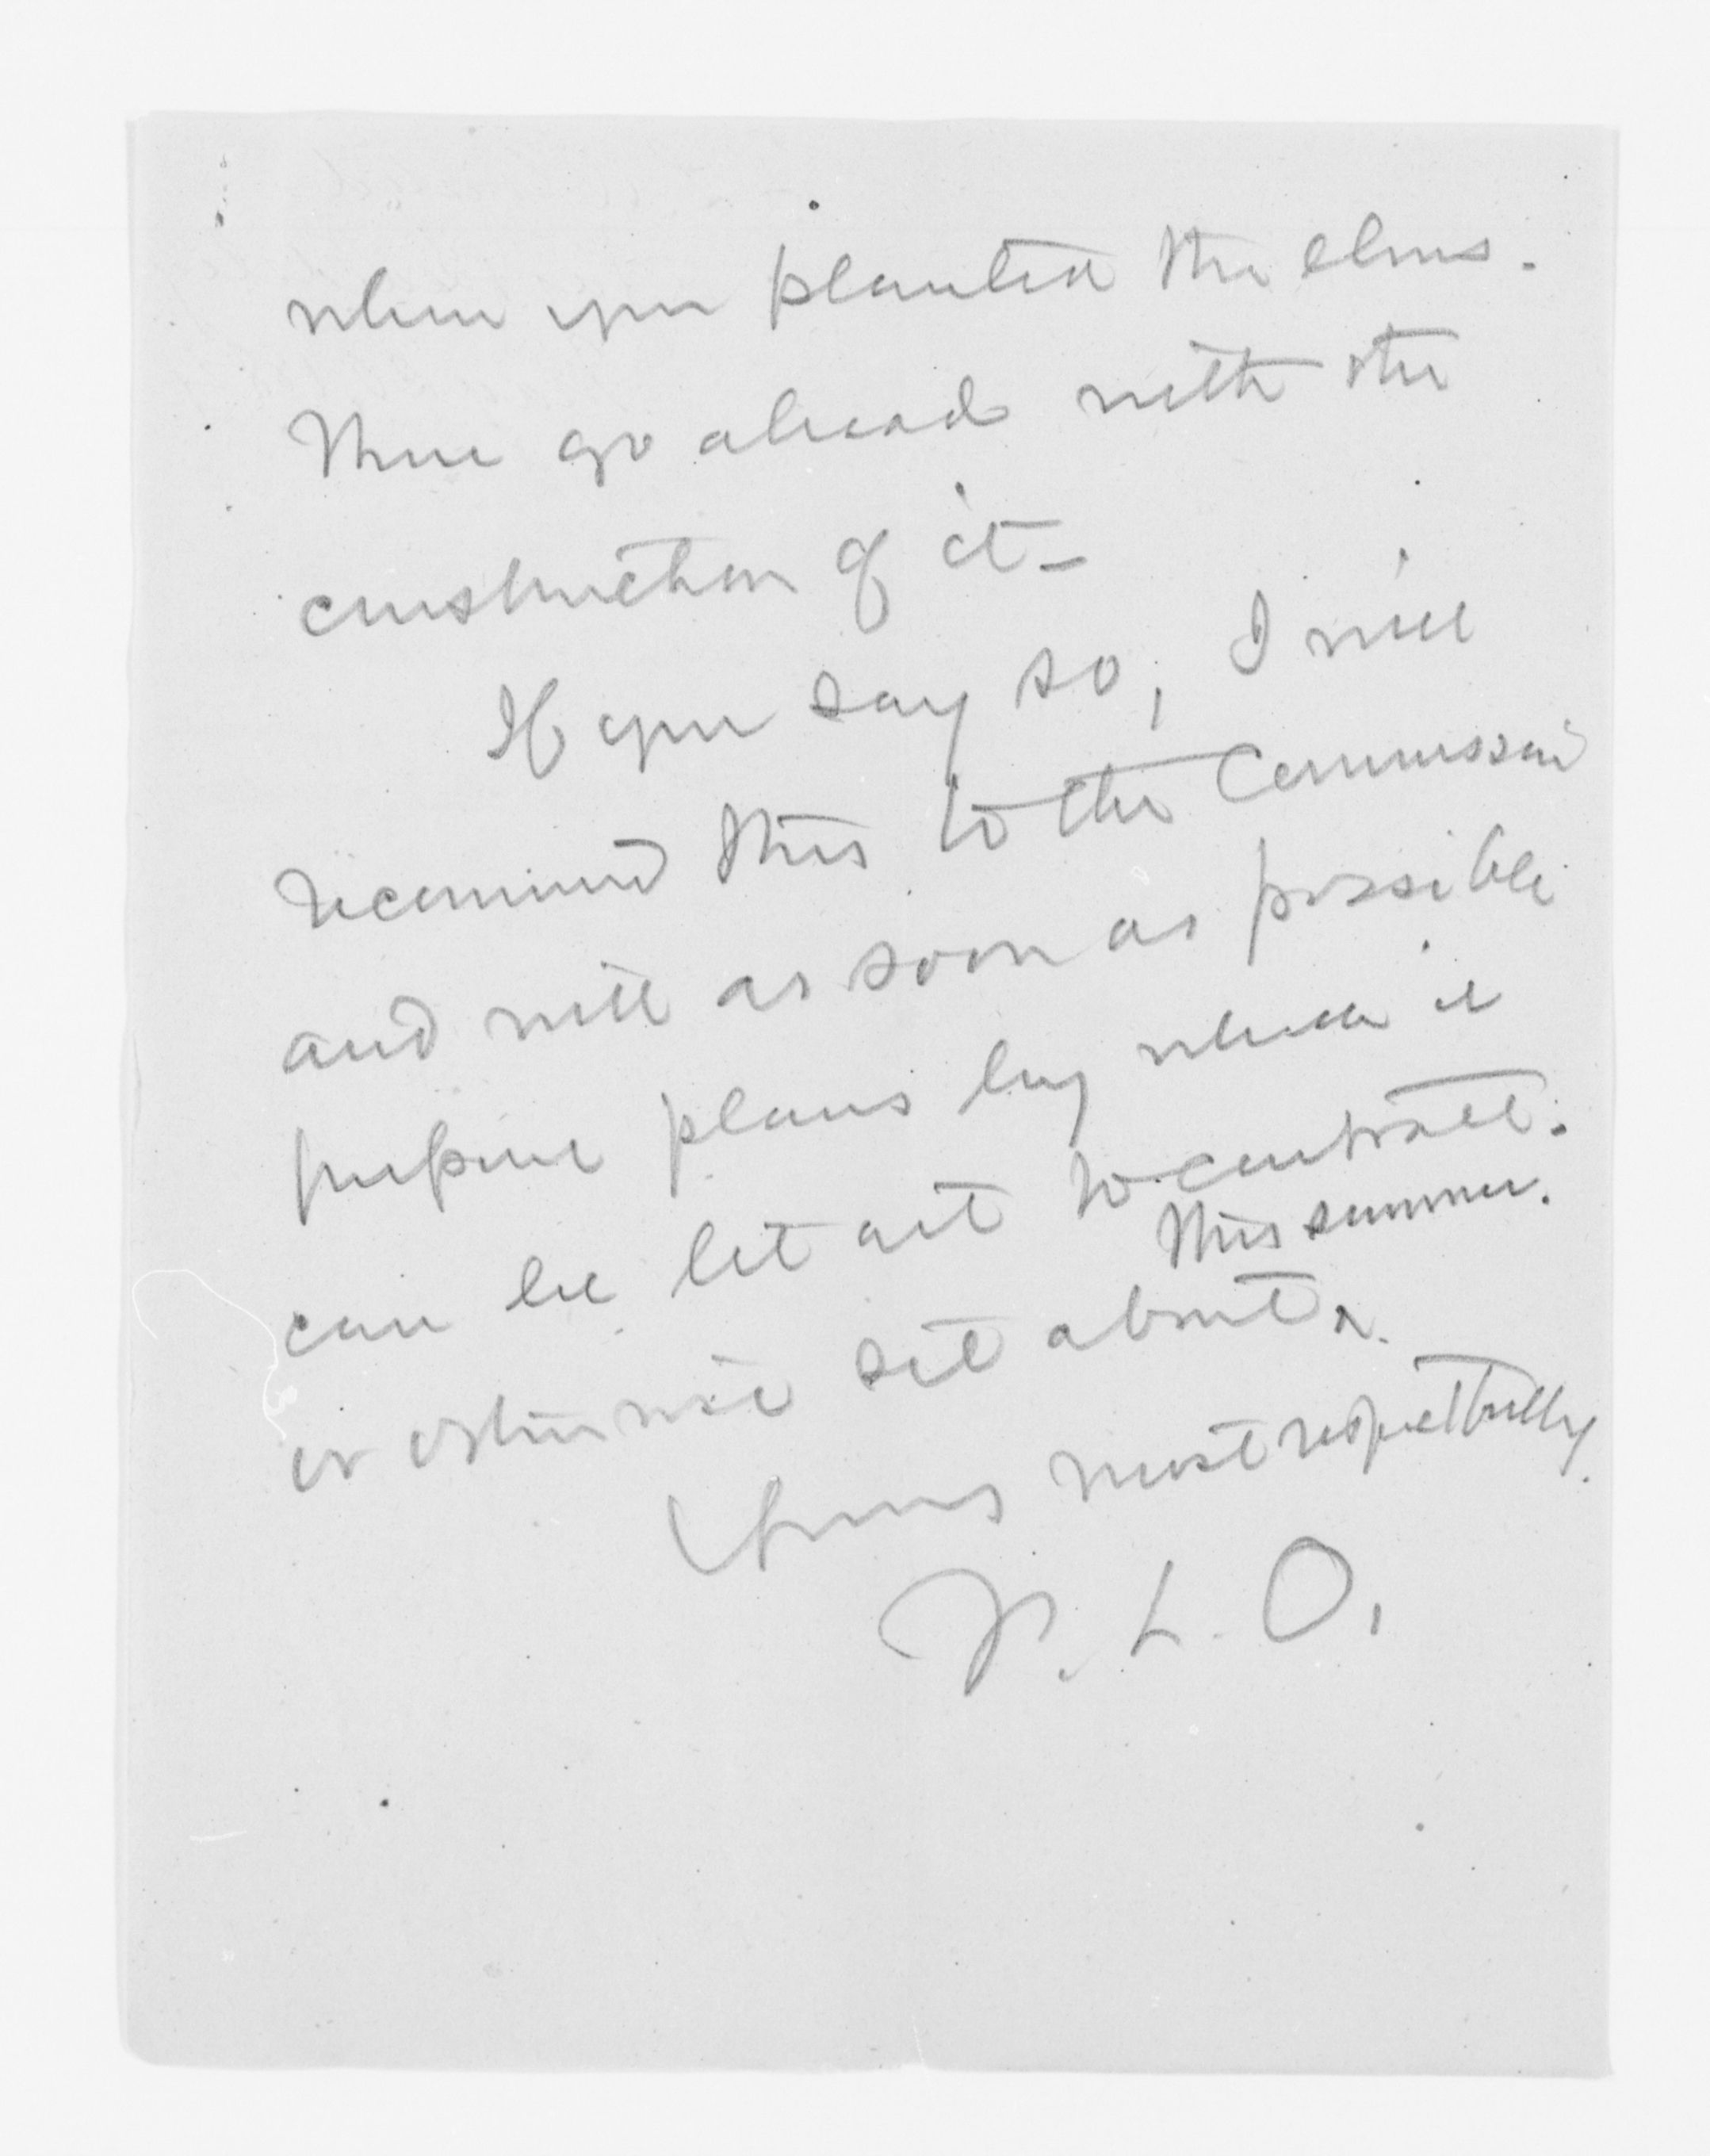 when you planted the elms.
Then go ahead with the
construction of it—
If you say so, I will
recommend this to the Commission
and will as soon as possible
prepare plans by which it
can be let out to contract.
this summer.
or otherwise set about ^.
Yours most respectfully
F. L. O.